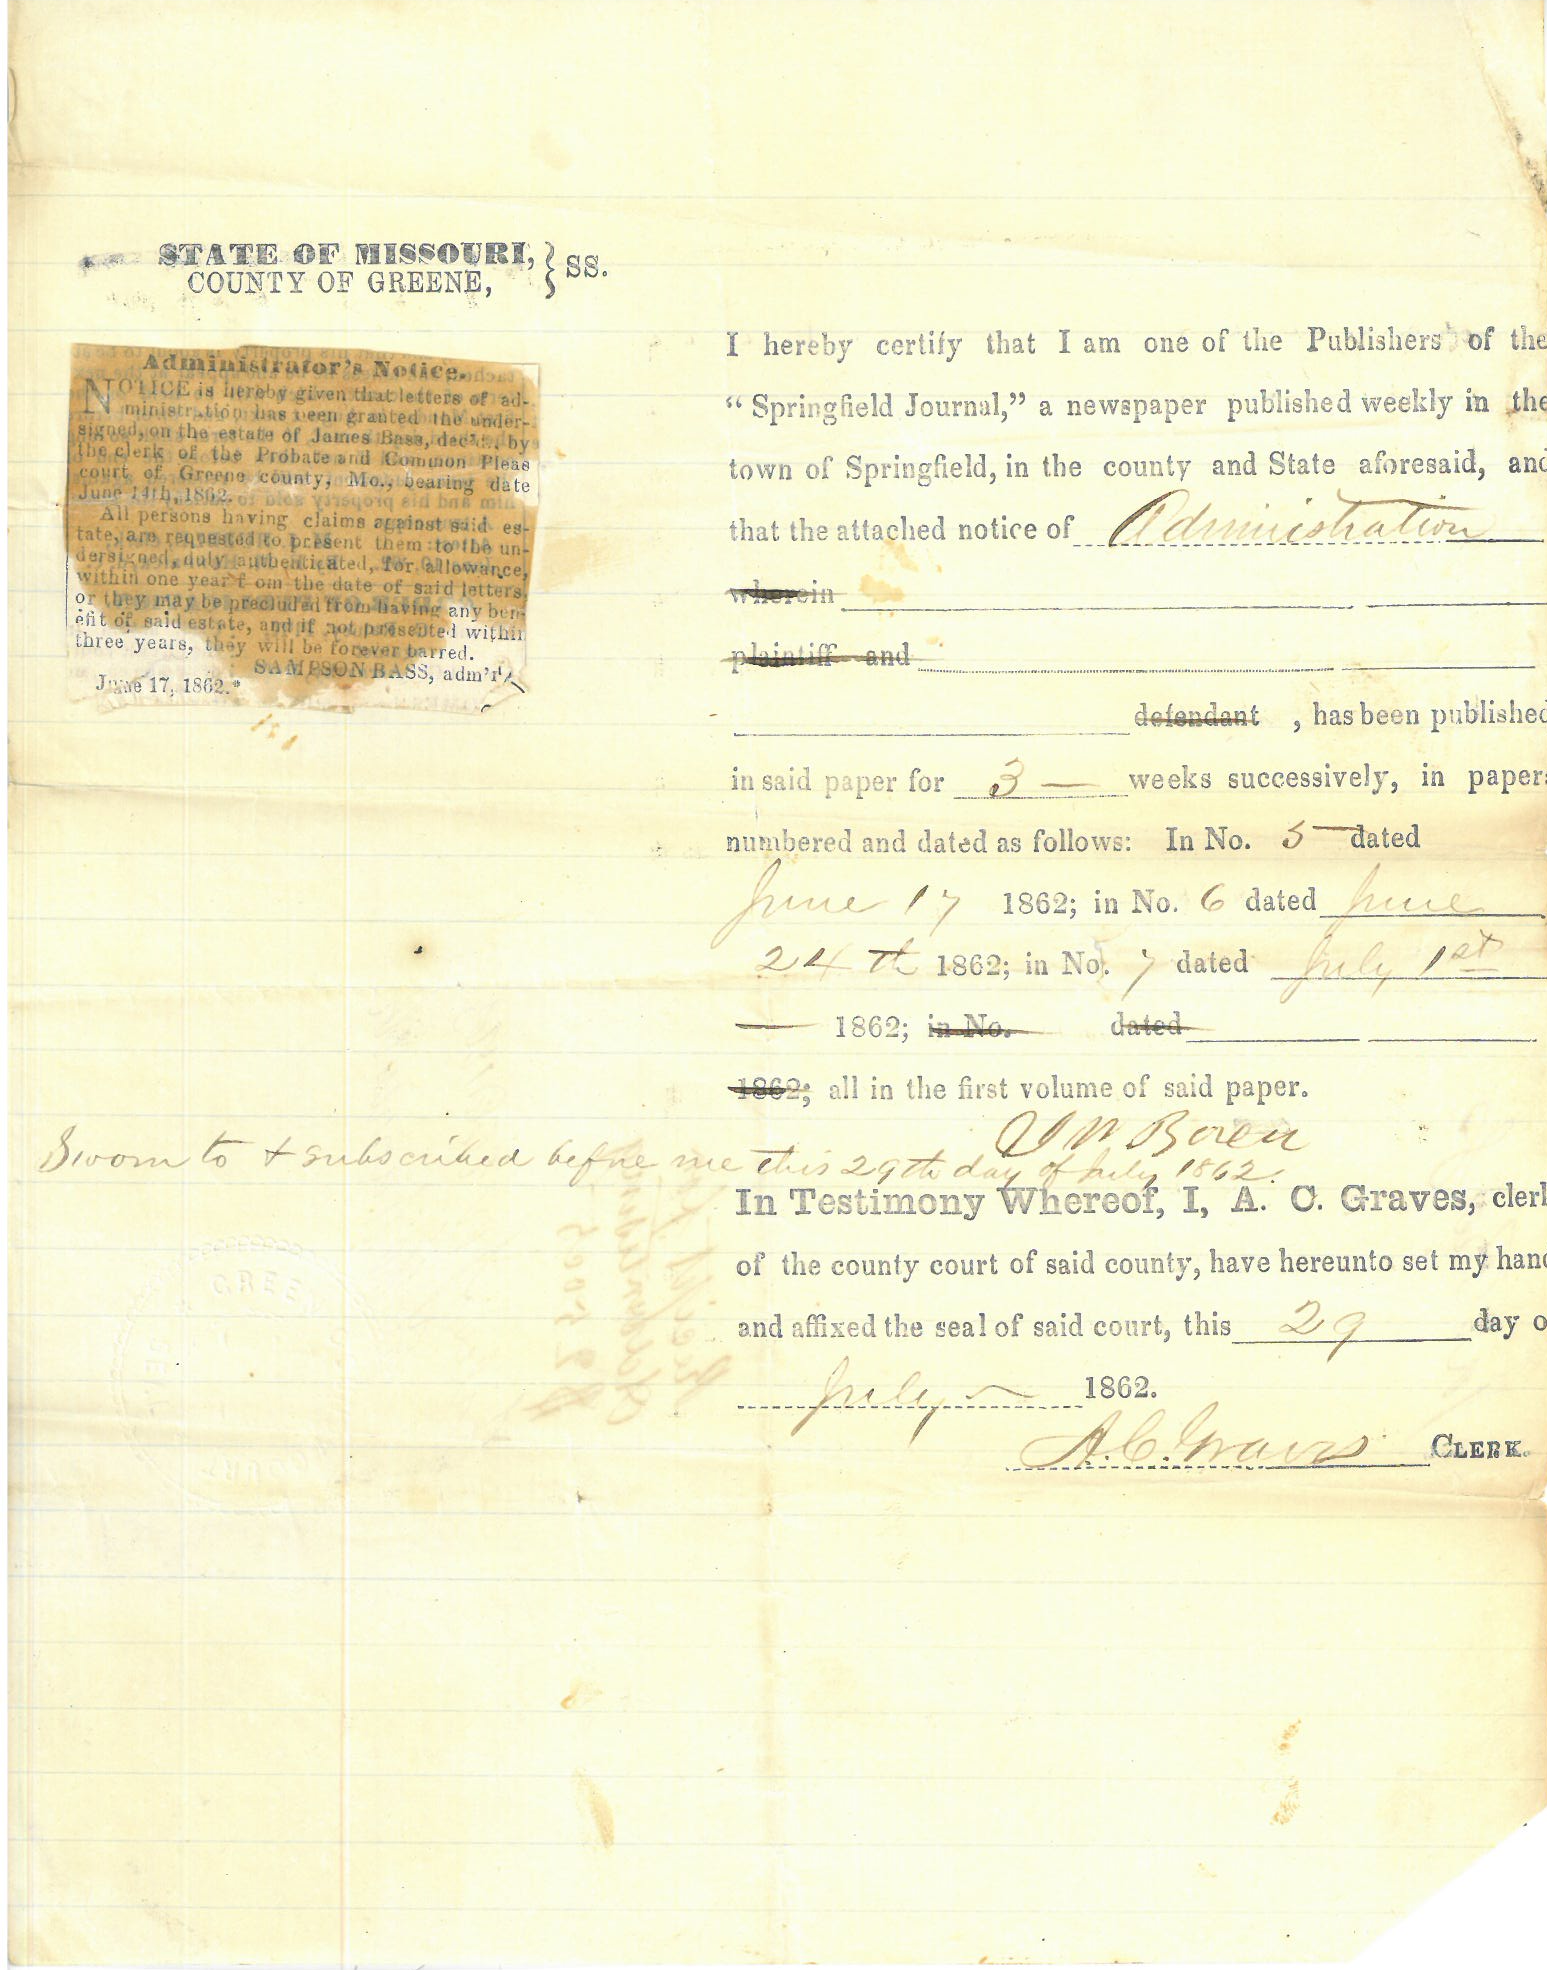 STATE OF MISSOURI, } SS.
COUNTY OF GREENE,
Administrator's Notice.
NOTICE is hereby given that letters of ad-
ministration has been granted the under-
signed, on the estate of James Bass, dec'd., by
the clerk of the Probate and Common Pleas
court of Greene county, Mo., bearing date
June 14th, 1862.
All persons having claims against said es-
tate, are requested to present them to the un-
dersigned, duly authenticated, for allowance,
within one year f om the date of said letters,
or they may be precluded from having any ben-
efit of said estate, and if not presented within
three years, they will be forever barred.
SAMPSON BASS, adm'r
June 17, 1862.*
I hereby certify that I am one of the Publishers of the
" Springfield Journal," a newspaper published weekly in the
town of Springfield, in the county and State aforesaid, and
that the attached notice of Administration
wherein
plaintiff and
defendant , has been published
in said paper for 3 — weeks successively, in paper
numbered and dated as follows: In No. 5 dated
June 17 1862; in No. 6 dated June
24th 1862; in No. 7 dated July 1st
— 1862; in No. dated
1862; all in the first volume of said paper.
Boren
Sworn to & subscribed before me this 29th day of July 1862.
In Testimony Whereof, I, A. C. Graves, cler
of the county court of said county, have hereunto set my han
and affixed the seal of said court, this 29 day o
July — 1862.
A. C. Graves CLERK.
GREEN